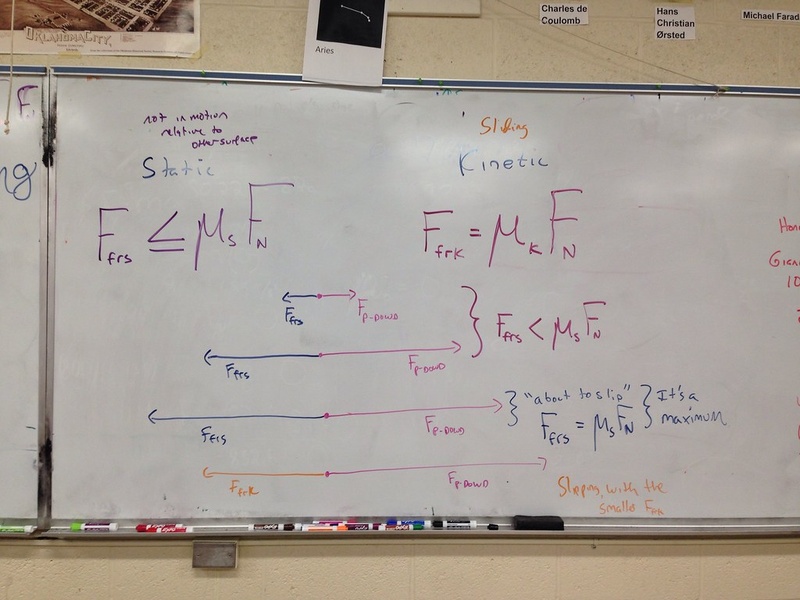 OKLAHOMA CITY.
Aries
Charles de
Coulomb
Hans
Christian
Ørsted
Michael Farad
F
ng
not in motion
relative to
other surface
Static
F_frs ≤ μ_s F_N
Sliding
Kinetic
F_frk = μ_k F_N
F_frs F_P-DOWD
F_frs F_P-DOWD
} F_frs < μ_s F_N
F_frs F_P-DOWD
} "about to slip" } It's a
F_frs = μ_s F_N maximum
F_frk F_P-DOWD
Slipping, with the
smaller F_frk
10